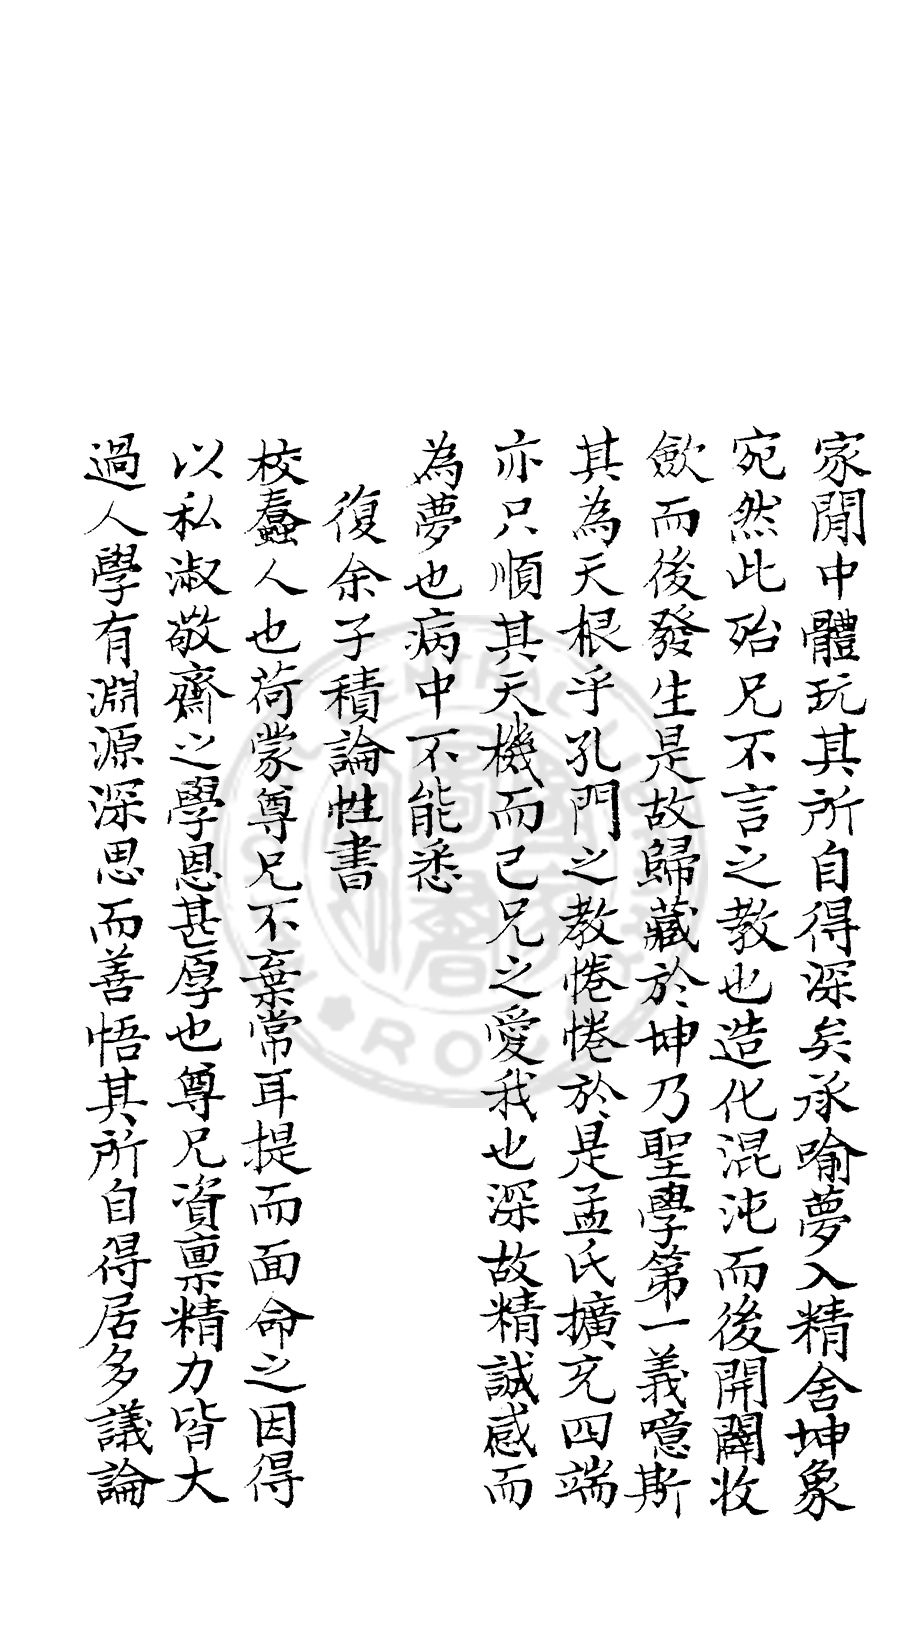 家閒中體玩其所自得深矣承喻夢入精舍坤象
宛然此殆兄不言之教也造化混沌而後開闢收
斂而後發生是故歸藏於坤乃聖學第一義噫斯
其為天根乎孔門之教惓惓於是孟氏擴充四端
亦只順其天機而已兄之愛我也深故精誠感而
為夢也病中不能悉
復余子積論性書
校蠢人也荷蒙尊兄不棄常耳提而面命之因得
以私淑敬齋之學恩甚厚也尊兄資稟精力皆大
過人學有淵源深思而善悟其所自得居多議論